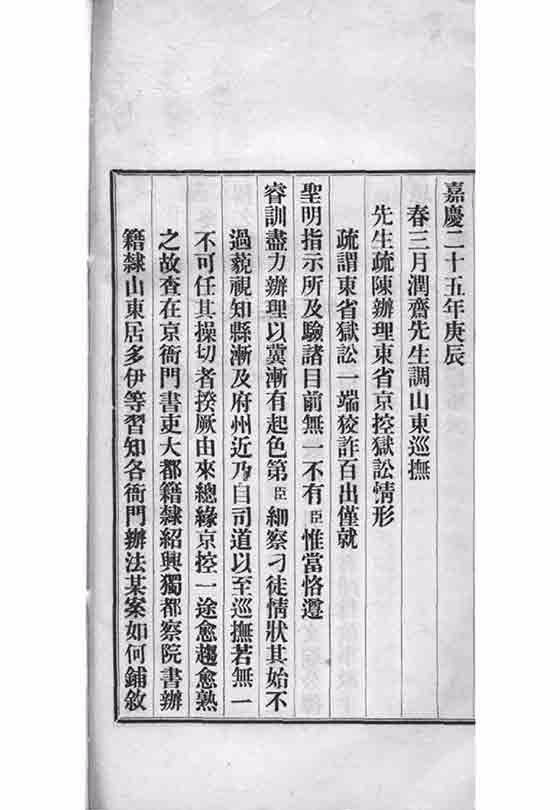 嘉慶二十五年庚辰
春三月潤齋先生調山東巡撫
先生疏陳辦理東省京控獄訟情形
疏謂東省獄訟一端狡詐百出僅就
聖明指示所及驗諸目前無一不有臣惟當恪遵
睿訓盡力辦理以冀漸有起色第臣細察刁徒情狀其始不
過藐視知縣漸及府州近乃自司道以至巡撫若無一
不可任其操切者揆厥由來總緣京控一途愈趨愈熟
之故查在京衙門書吏大都籍隸紹興獨都察院書辦
籍隸山東居多伊等習知各衙門辦法某案如何鋪敘